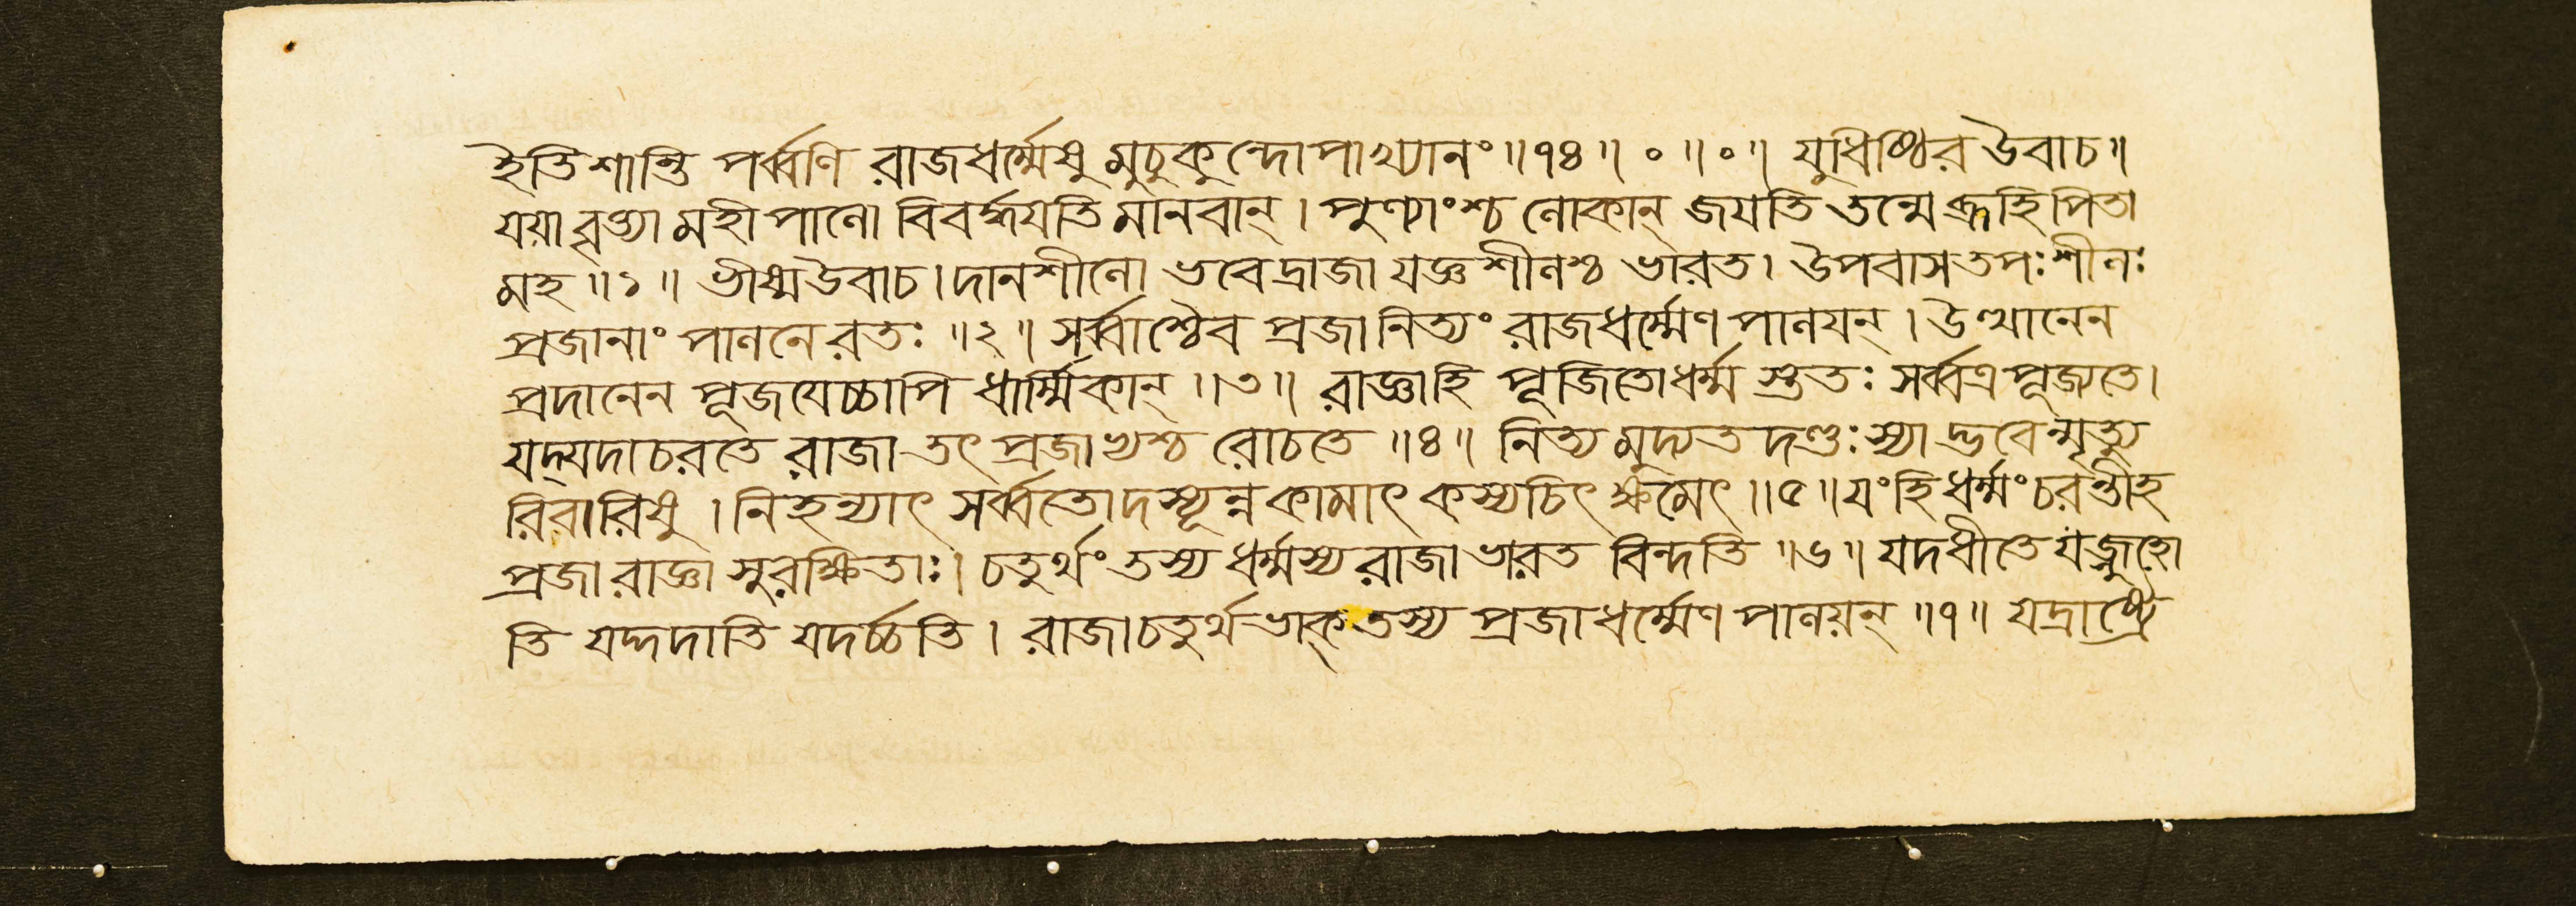 ইতি শান্তি পর্ব্বণি রাজধর্ম্মেষু মুচুকুন্দোপাখ্যানং ॥ ৭৪ ॥ ० ॥ ० ॥ যুধিষ্ঠির উবাচ ॥
যয়া বৃত্ত্যা মহীপালো বিবর্দ্ধয়তি মানবান্ । পুণ্যাংশ্চ লোকান্ জয়তি তন্মে ব্রূহি পিতা
মহ ॥ ১ ॥ ভীষ্ম উবাচ । দানশীলো ভবেদ্রাজা যজ্ঞশীলশ্চ ভারত । উপবাসতপঃশীলঃ
প্রজানাং পালনে রতঃ ॥ ২ ॥ সর্ব্বাশ্চৈব প্রজা নিত্যং রাজধর্ম্মেণ পালয়ন্ । উত্থানেন
প্রদানেন পূজয়েচ্চাপি ধার্ম্মিকান্ ॥ ৩ ॥ রাজ্ঞা হি পূজিতো ধর্ম্ম স্তুতঃ সর্ব্বত্র পূজ্যতে ।
যদ্যদাচরতে রাজা তৎ প্রজাখশ্চ রোচতে ॥ ৪ ॥ নিত্য মুদ্যত দণ্ডঃ স্যাদ্ভবেন্মৃত্যু
রিবারিষু । নিহন্যাৎ সর্ব্বতো দস্যূন্ন কামাৎ কস্যচিৎ ক্ষমেৎ ॥ ৫ ॥ যং হি ধর্ম্মং চরন্তীহ
প্রজা রাজ্ঞা সুরক্ষিতাঃ । চতুর্থং তস্য ধর্ম্মস্য রাজা ভারত বিন্দতি ॥ ৬ ॥ যদধীতে যজ্জুহো
তি যদ্দদাতি যদর্চ্চতি । রাজা চতুর্থভাক্ তস্য প্রজা ধর্ম্মেণ পালয়ন্ ॥ ৭ ॥ যদ্রাষ্ট্রে